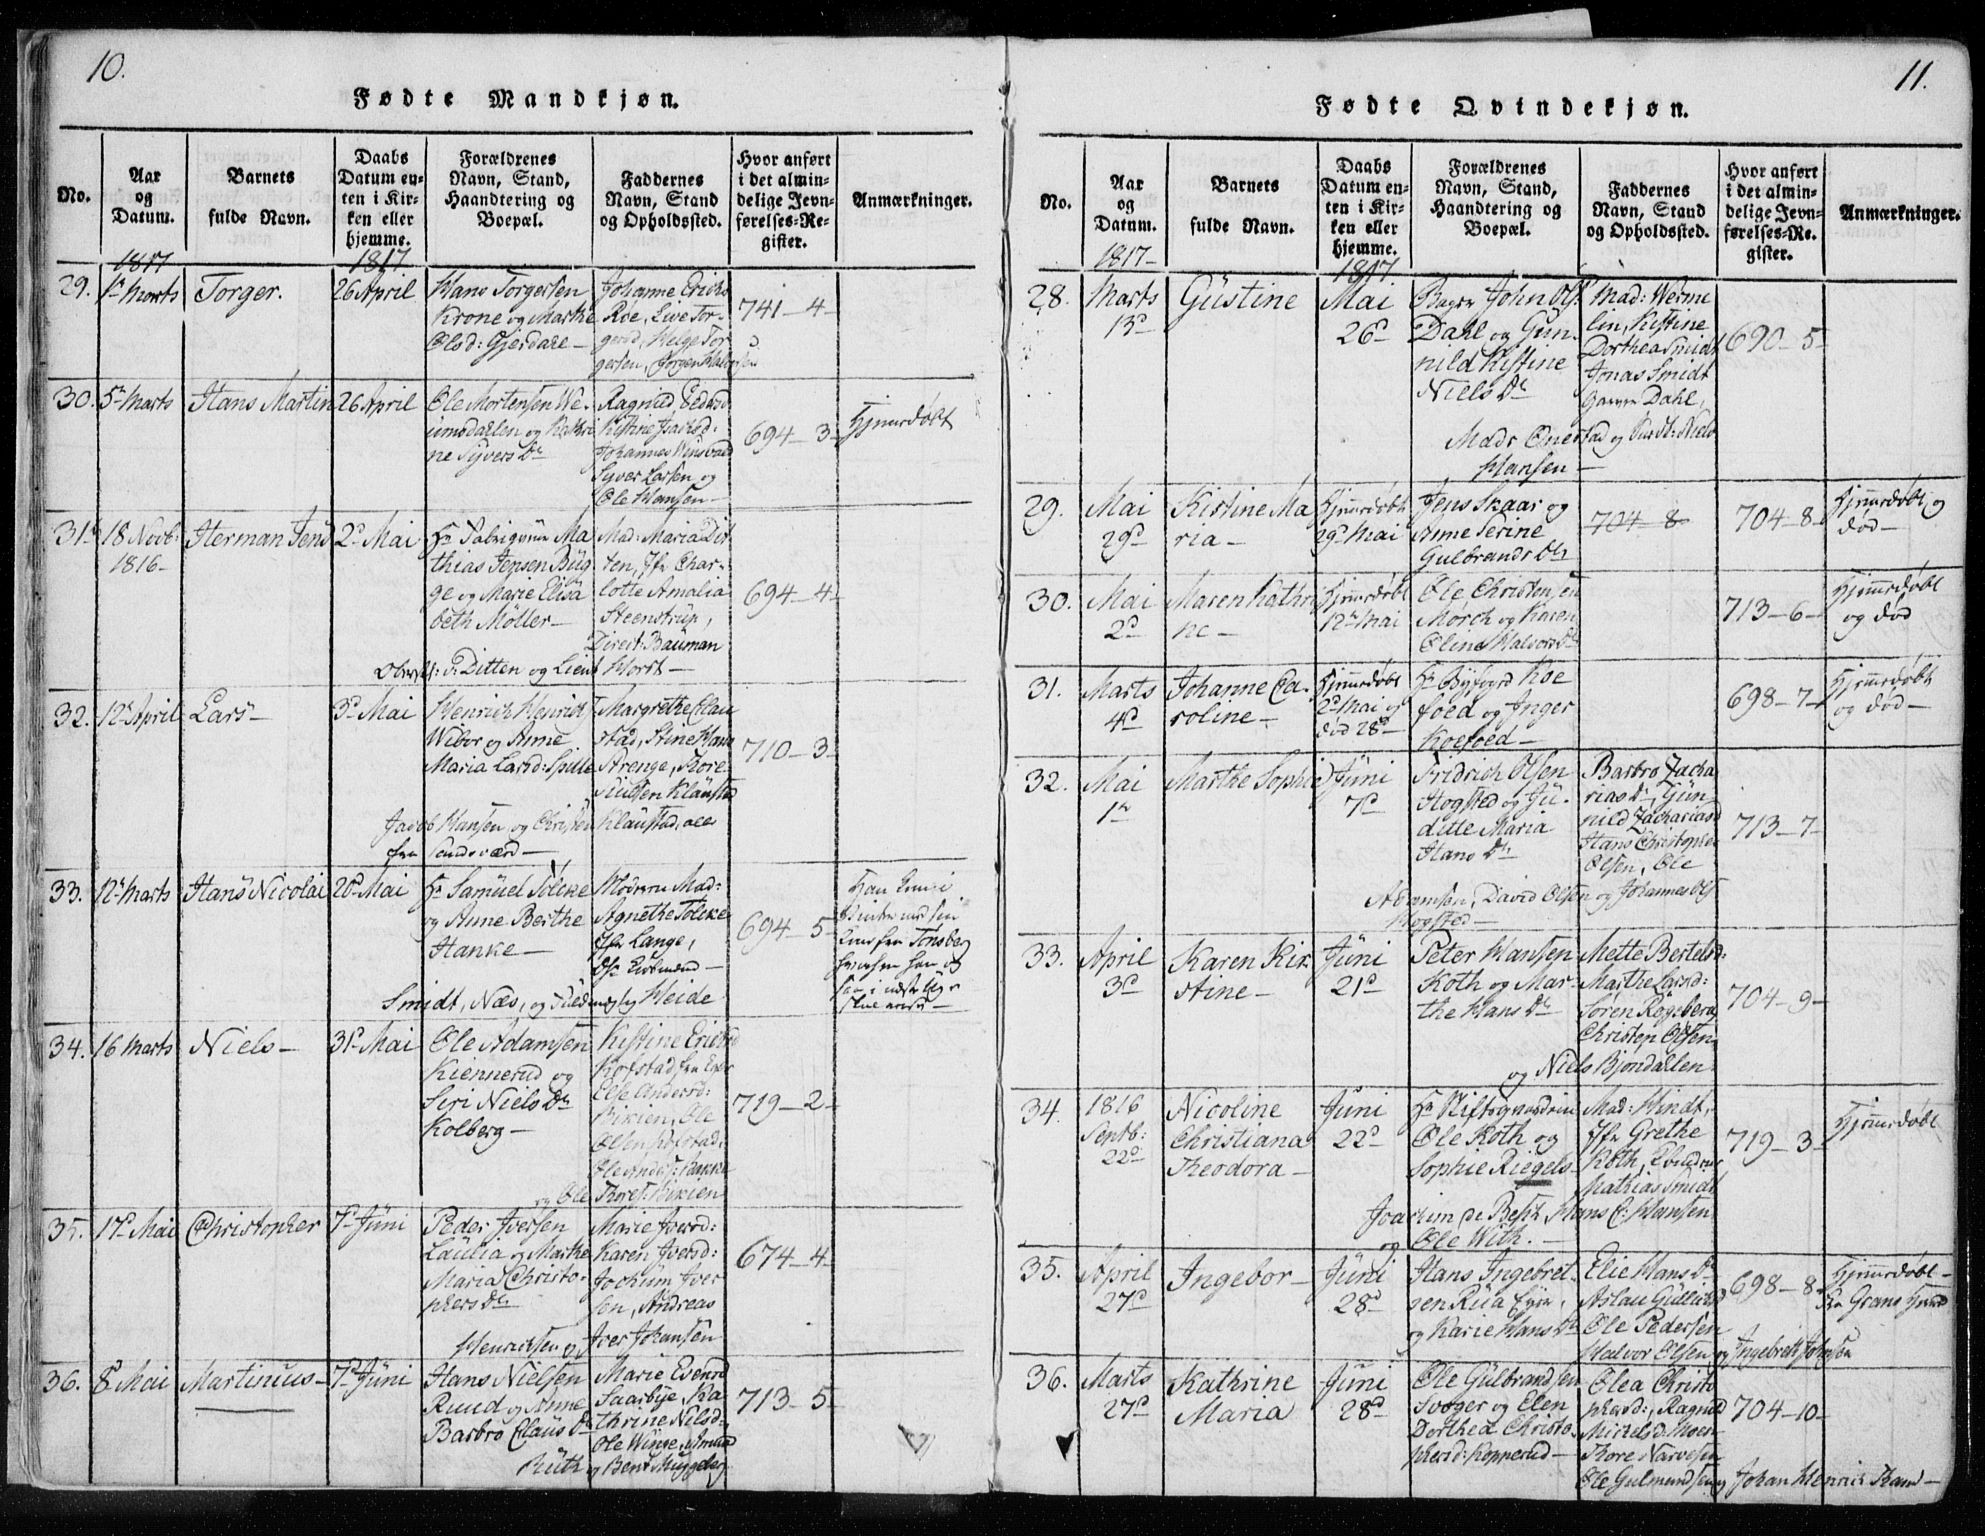 10.
Fødte Mandkjøn.
No.
Aar
og
Datum.
Barnets
fulde Navn.
Daabs
Datum en-
ten i Kir-
ken eller
hjemme.
Forældrenes
Navn, Stand,
Haandtering og
Boepæl.
Faddernes
Navn, Stand
og Opholdssted.
Hvor anført
i det almin-
delige Jevn-
førelses-Re-
gister.
Anmærkninger.
1817
1817
29.
Marts
Torger.
26 April
Hans Torgersen
Krone og Marthe
Olsd: Gjerdale
Johanne Erichs
Roe, Live Tor-
gersd, Helge Tor
gersen, Jørgen Halvorsen
741-4-
30.
5te Marts
Hans Martin
26 April
Ole Mortensen We-
umsdahlen og Kathri
ne Syvers Dtr
Ragnild
Kistine Isachsd:
Johannes
Syver Larsen og
Ole Hansen
694-3-
Hjemedøbt
31.
18 Novb:
1816
Herman Jens
2d Mai
Hr Ma
thias Jensen Büg
ge og Marie Elisa
beth Möller
Mad: Maria Dit
ten, Jfr Char-
lotte Amalia
Steenstrup,
Direct: Bauman
Ditten og Lieut Horst
694-4-
32.
12 April
Lars
3d Mai
Henrich Henrich
Webor og Anne
Maria Larsd: Spille
Margrethe Clau
stad, Stine Hans
Strenge, Tore
Klaustad
Jacob Hansen, og Christen Klaustad, alle
fra Sandsværd
710-3
33.
12 Marts
Hans Nicolai
20 Mai
Hr Samuel Tolcke
og Anne Berthe
Hanke
Moderen Mad:
Agnethe Tolcke
Jfr Lange,
Smidt, Næs, og Heide
694-5-
Tønsberg
34.
16 Marts
Niels
31 Mai
Ole Adamsen
Kiennerud og
Siri Niels Dtr
Kolberg
Kistine Erichsd
Kofstad fra Eger
Else Andersd:
Bikien, Ole
Olsen Kofstad,
Ole Anders: Hakke
og Ole Tores: Bikien
719-2-
35.
17 Mai
Christopher
7 Juni
Peder Iversen
Laulia og Marthe
Maria Christo-
phers Dtr
Marie Iversd:
Karen Iversd:
Jochum Iver
sen, Andreas
Henrichsen og Iver Johansen
674-4-
36.
8 Mai
Martinius
7 Juni
Hans Nielsen
Ruud og Anne
Barbro Claus Dtr
Marie Evensd
Saarbye, Ka
thrine Nilsd:
Ole Winge, Amund
Ruth og Bent Muggeberg
713-5-
11.
Fødte Qvindekjøn.
No.
Aar
og
Datum.
Barnets
fulde Navn.
Daabs
Datum en-
ten i Kir-
ken eller
hjemme.
Forældrenes
Navn, Stand,
Haandtering og
Boepæl.
Faddernes
Navn, Stand
og Opholdssted.
Hvor anført
i det almin-
delige Jevn-
førelses-Re-
gister.
Anmærkninger.
1817
1817
28.
Marts
13d
Güstine
Mai
26d
Bager John Ols:
Dahl og Gun-
nild Kistine
Niels Dtr
Mad: Werme
lin, Kistine
Dorthea Smidt
Jonas Smidt
Garver Dahl,
Mads Onestad og Niels
Hansen
690-5-
29.
Mai
29d
Kistine Ma
ria
Hjemmedøbt
29d Mai
Jens Skaar og
Anne Serine
Gulbrands Dtr
704-8
704-8-
Hjemmedøbt og
død
30.
Mai
2d
Maren Kathri
ne
Hjemmedøbt
12te Mai
Ole Christensen
Mørch og Karen
Oline Halvors Dtr
713-6-
Hjemmedøbt
og død
31.
Marts
4d
Johanne Ca-
roline
Hjemmedøbt
2d Mai og
død 28d
Hr Byfogd Koe
foed og Inger
Koefoed
698-7-
Hjemmedøbt
og død
32.
Mai
1te
Marthe Sophie
Juni
7d
Fridrich Olsen
Hogsted og Jü-
ditte Maria
Hans Dtr
Barbro Zacha
rias Dtr, Gün
nild Zachariasd
Hans Christopher
Olsen, Ole
Adamsen, David Olsen og Johannes Ols
Hogsted
713-7-
33.
April
3d
Karen Kir
stine
Juni
21d
Peter Hansen
Koth og Mar-
the Hans Dtr
Mette Bertelsd:
Marthe Larsd:
Søren Rögeberg
Christen Olsen
og Niels Bjondalen
704-9-
34.
1816
Septb:
22d
Nicoline
Christiana
Theodora
Juni
22d
Hr Stiftsgaardein
Ole Koth og
Sophie Riegels
Mad: Hindt,
Jfr Grethe
Koth,
Mathias Smidt
Joachim de Besk Hans C: Hansen
og Ole With.
719-3-
Hjemmedøbt
35.
April
27d
Ingebor
Juni
28d
Hans Ingebret-
sen Rüa Eger
og Karie Hans Dtr
Elie Hans Dtr
Aslau Gullichsd
Ole Pedersen
Halvor Olsen og Ingebret Johnsen
698-8-
Hjemmedøbt
36.
Marts
27d
Kathrine
Maria
Juni
28d
Ole Gulbrandsen
Svoger og Elen
Dorthea Christo-
phersd: Kopperud
Olea Christo
phersd:, Ragnild
Michelsd: Moen
Thore Narvesen
Ole Gulmundsen og Johan Henrich Rasm
704-10-